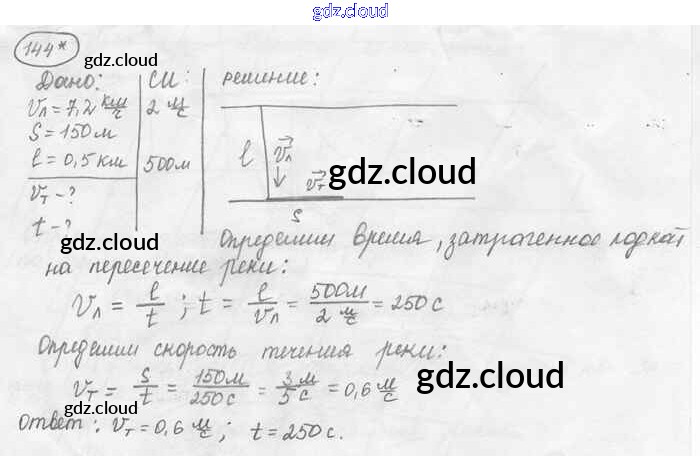 gdz.cloud
144*
Дано: СИ: решение:
gdz.cloud
vл = 7,2 км/ч 2 м/с
S = 150 м
l = 0,5 км 500 м
l vл vт gdz.cloud
vт - ?
S
t - ?
gdz.cloud
Определим время, затраченное лодкой
на пересечение реки:
vл = l/t ; t = l/vл = 500м / 2 м/с = 250 с
Определим скорость течения реки:
vт = S/t = 150м/250с = 3 м/5 с = 0,6 м/с
gdz.cloud
gdz.cloud
Ответ: vт = 0,6 м/с; t = 250 с.